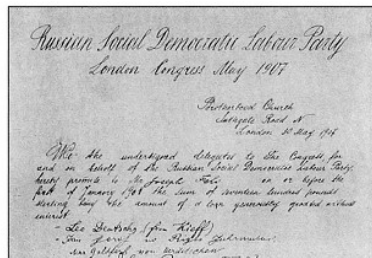 Russian Social Democratic Labour Party
London Congress May 1907
Brotherhood Church
Southgate Road N
London May
We the undersigned delegates to the Congress, for
and on behalf of the Russian Social Democratic Labour Party
hereby promise to Mr Joseph Fels on or before the
first of January 1908 the sum of seventeen hundred pounds
sterling being the amount of a loan generously granted without
interest
Leo Deutsch (from Kieff)
from
from